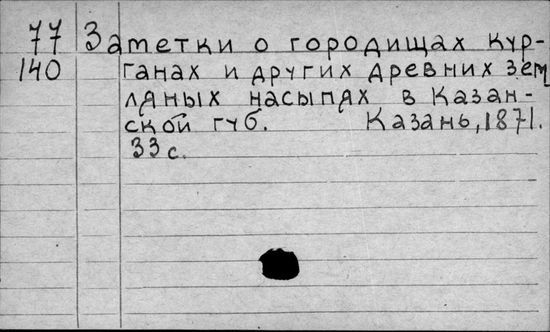 77 Заметки о городищах кур-
140 ганах и других древних зем
ляных насыпях в Казан-
ской губ. Казань, 1871.
33 с.